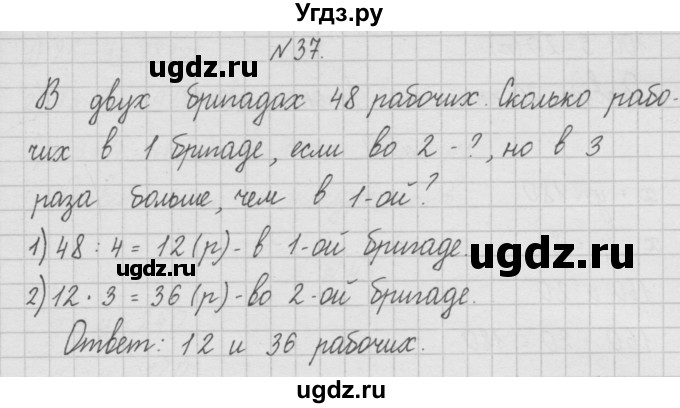 Угдз.ру
№37.
ugdz.ru
В двух бригадах 48 рабочих. Сколько рабо-
чих в 1 бригаде, если во 2 - ?, но в 3
раза больше, чем в 1-ой?
1) 48 : 4 = 12 (р) - в 1-ой бригаде.
ugdz.ru
ugdz.ru
2) 12 · 3 = 36 (р) - во 2-ой бригаде.
Ответ: 12 и 36 рабочих.
ugdz.ru